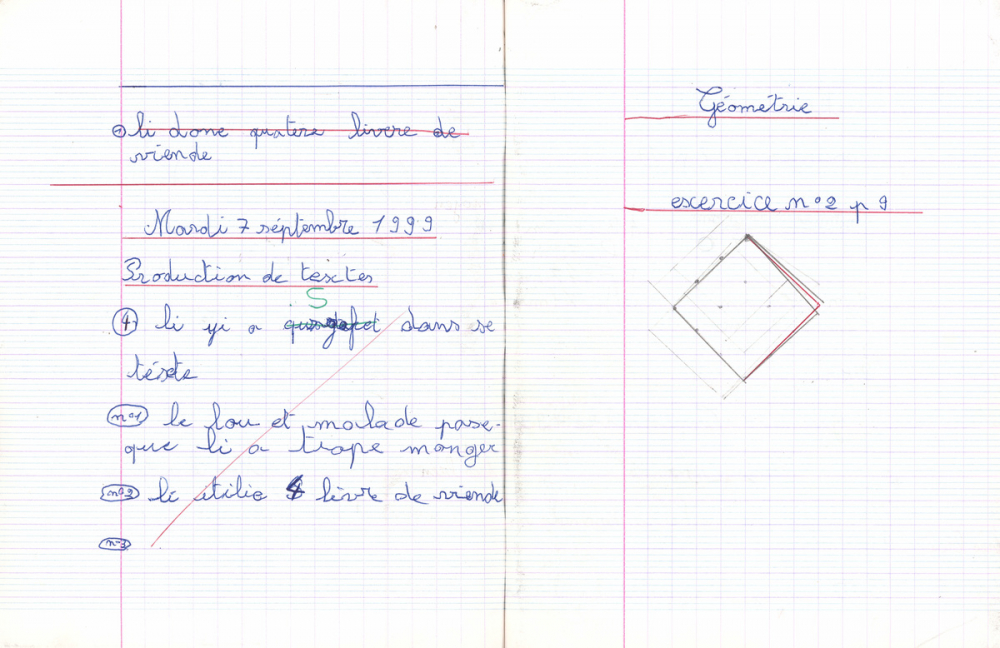 li done quatere livere de
viende
Mardi 7 séptembre 1999
Production de tesctes
4 li yi a S dans se
téscte
n°1 le lou et malade pase-
que li a trope manger
n°2 li utilie 4 livre de viende
n°3
Géométrie
escercice n°2 p 9